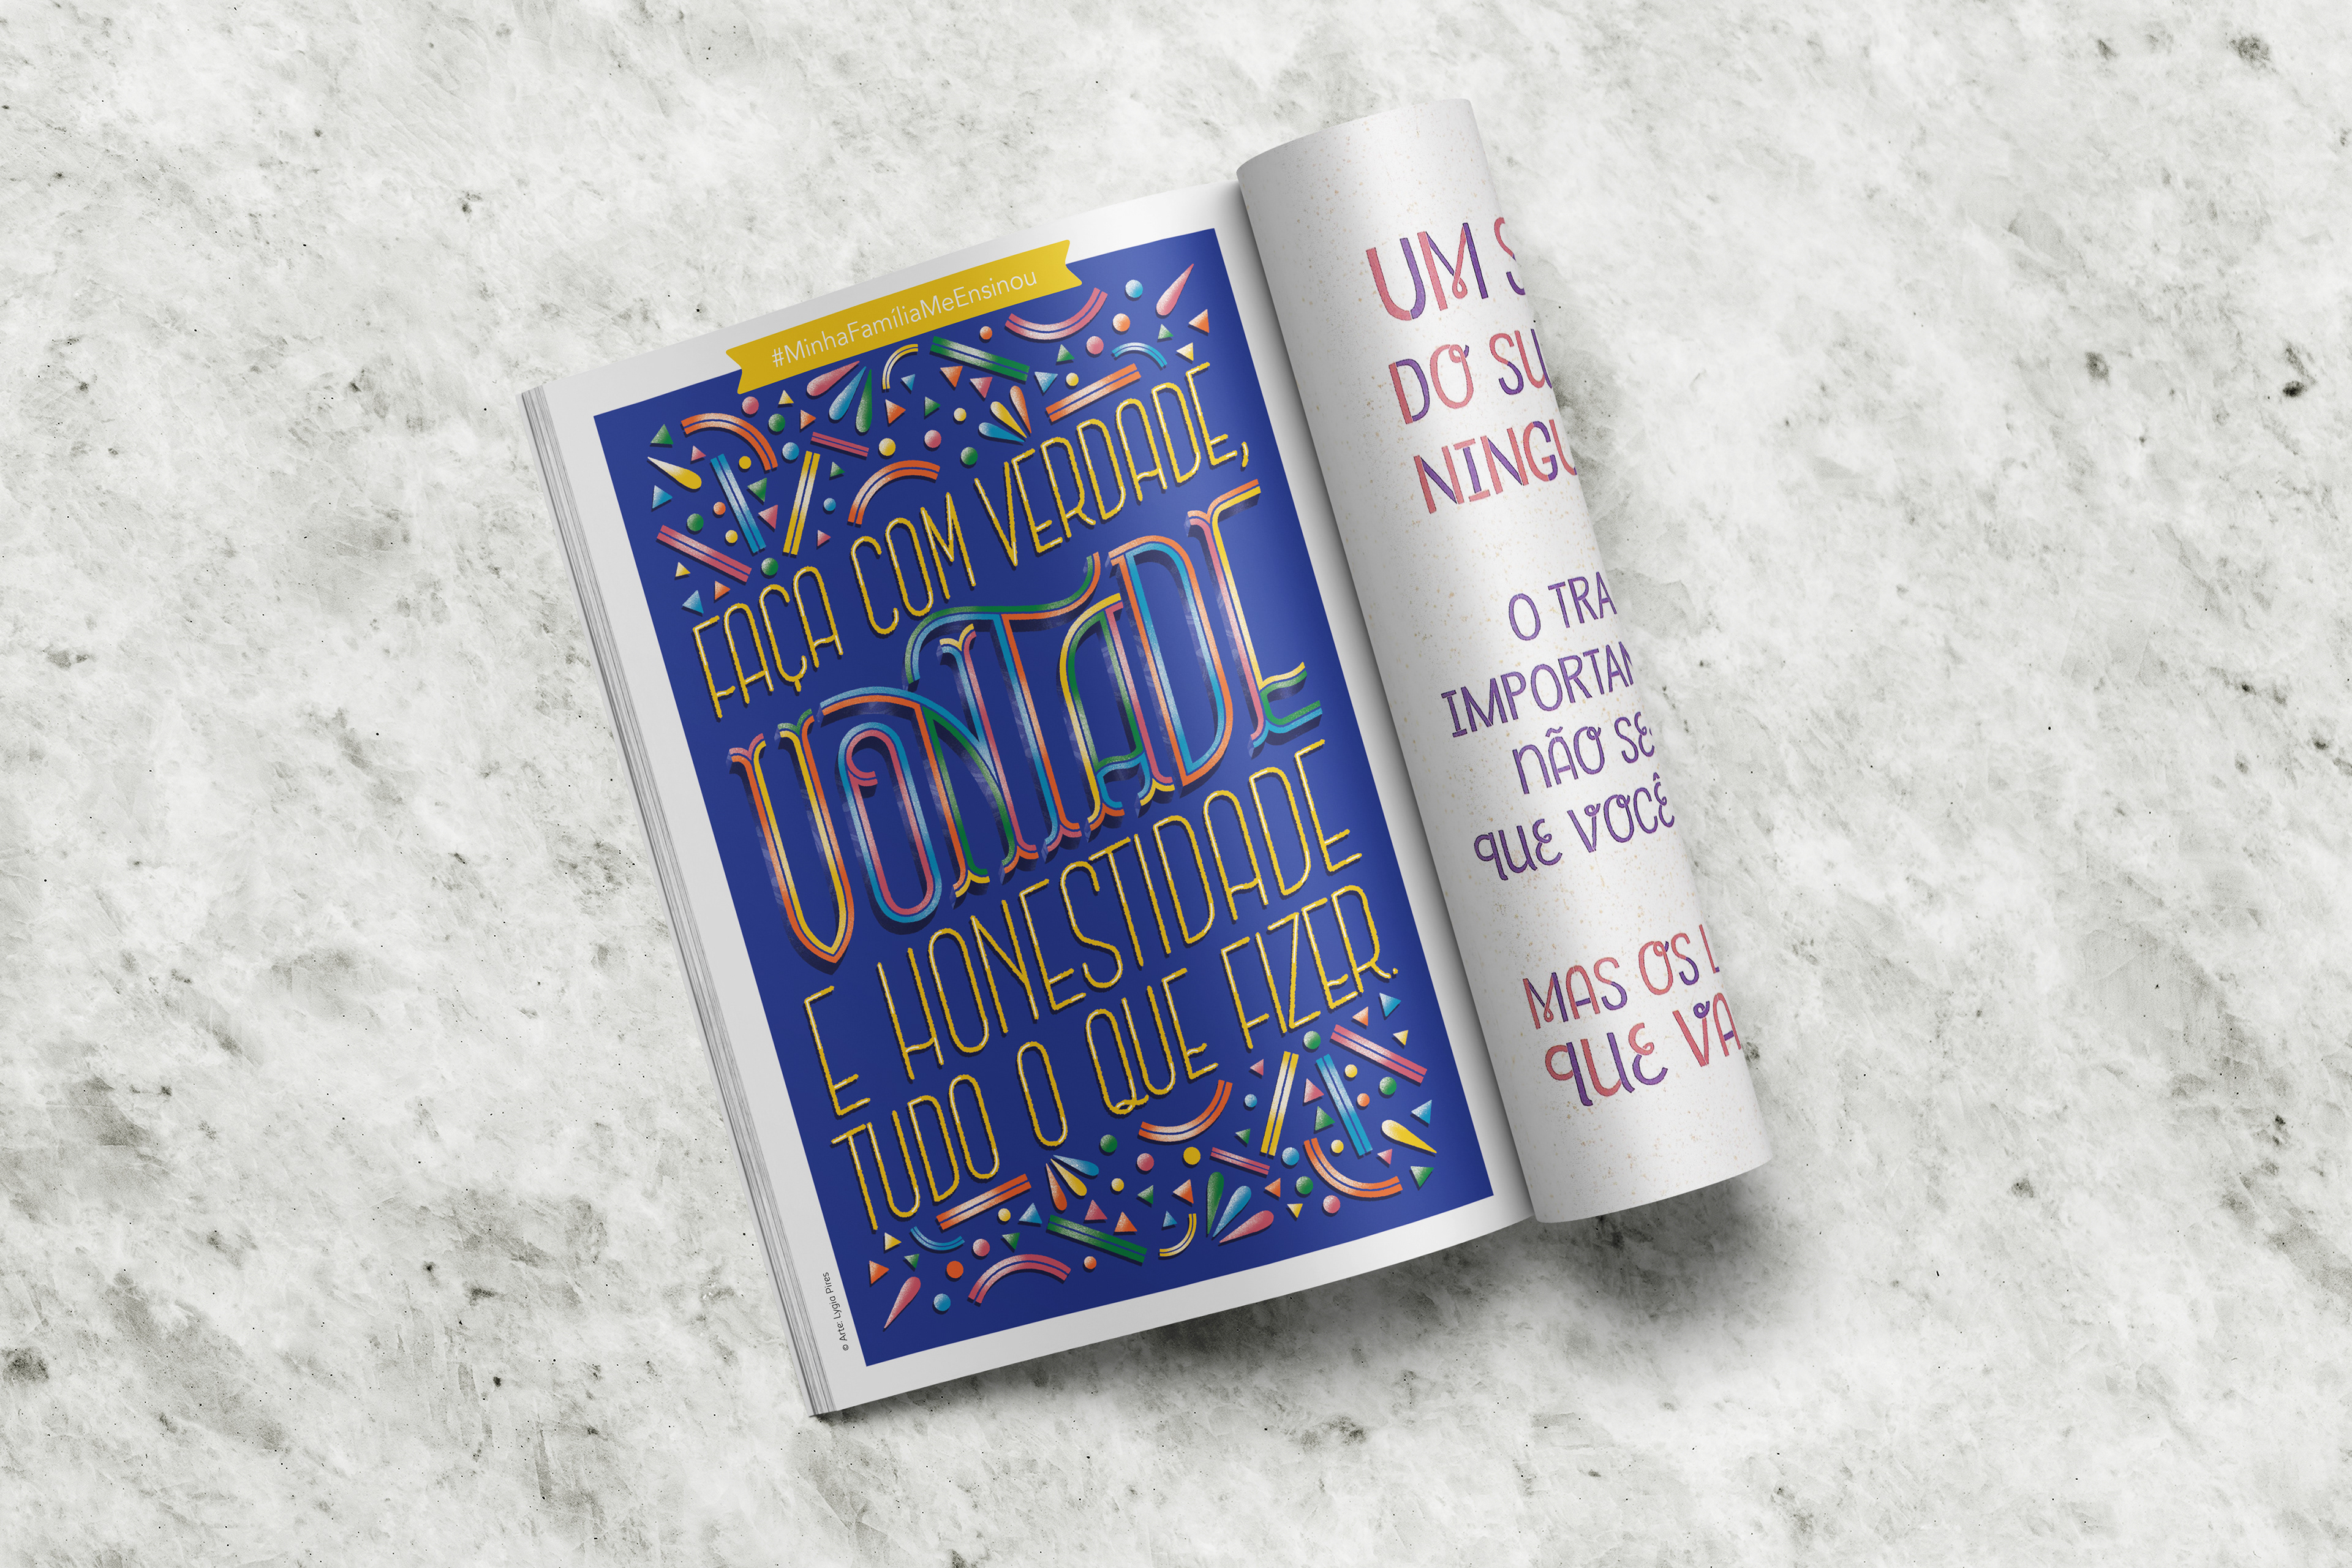 #MinhaFamíliaMeEnsinou
FAÇA COM VERDADE,
VONTADE
E HONESTIDADE
TUDO O QUE FIZER.
© Arte: Lygia Pires
UM
DO
NÃO
QUE VOCÊ
MAS OS
QUE